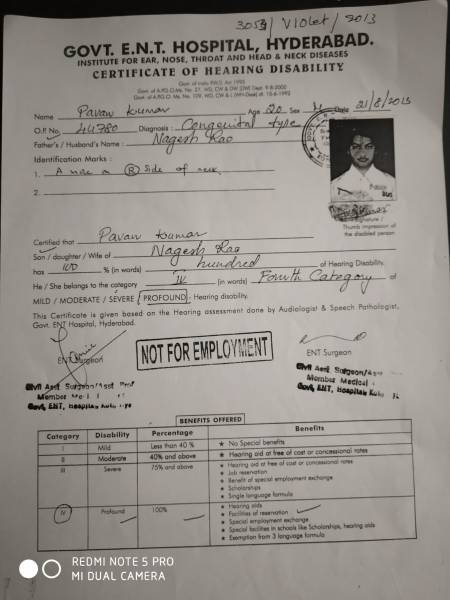 3053/ Violet / 2013
GOVT. E.N.T. HOSPITAL, HYDERABAD.
INSTITUTE FOR EAR, NOSE, THROAT AND HEAD & NECK DISEASES
CERTIFICATE OF HEARING DISABILITY
Govt. of India P.W.D. Act 1995
Name Pavan Kumar Age 20 Sex M Date 21/8/2013
O.P. No. 44780 Diagnosis : Congenital type
Father's / Husband's Name : Nagesh Rao
Identification Marks :
1. A mole on (R) Side of neck
2.
Signature /
Thumb impression of
the disabled person
Certified that Pavan Kumar
Son / daughter / Wife of Nagesh Rao
has 100 % (in words) hundred of Hearing Disability.
He / She belongs to the category IV (in words) Fourth Category of
MILD / MODERATE / SEVERE / PROFOUND - Hearing disability.
This Certificate is given based on the Hearing assessment done by Audiologist & Speech Pathologist,
Govt. ENT Hospital, Hyderabad.
ENT Surgeon NOT FOR EMPLOYMENT ENT Surgeon
Civil Asst Surgeon/Asst Prof
Member
Govt, ENT, Hospital
Civil Asst Surgeon/
Member Medical
Govt, ENT, Hospital
BENEFITS OFFERED
Category Disability Percentage Benefits
I Mild Less than 40 % ★ No Special benefits
II Moderate 40% and above ★ Hearing aid at free of cost or concessional rates
III Severe 75% and above ★ Hearing aid at free of cost or concessional rates
★ Job reservation
★ Benefit of special employment exchange
★ Scholarships
★ Single language formula
IV Profound 100% ★ Hearing aids
★ Facilities of reservation
★ Special employment exchange
★ Special facilities in schools like Scholarships, hearing aids
★ Exemption from 3 language formula
REDMI NOTE 5 PRO
MI DUAL CAMERA